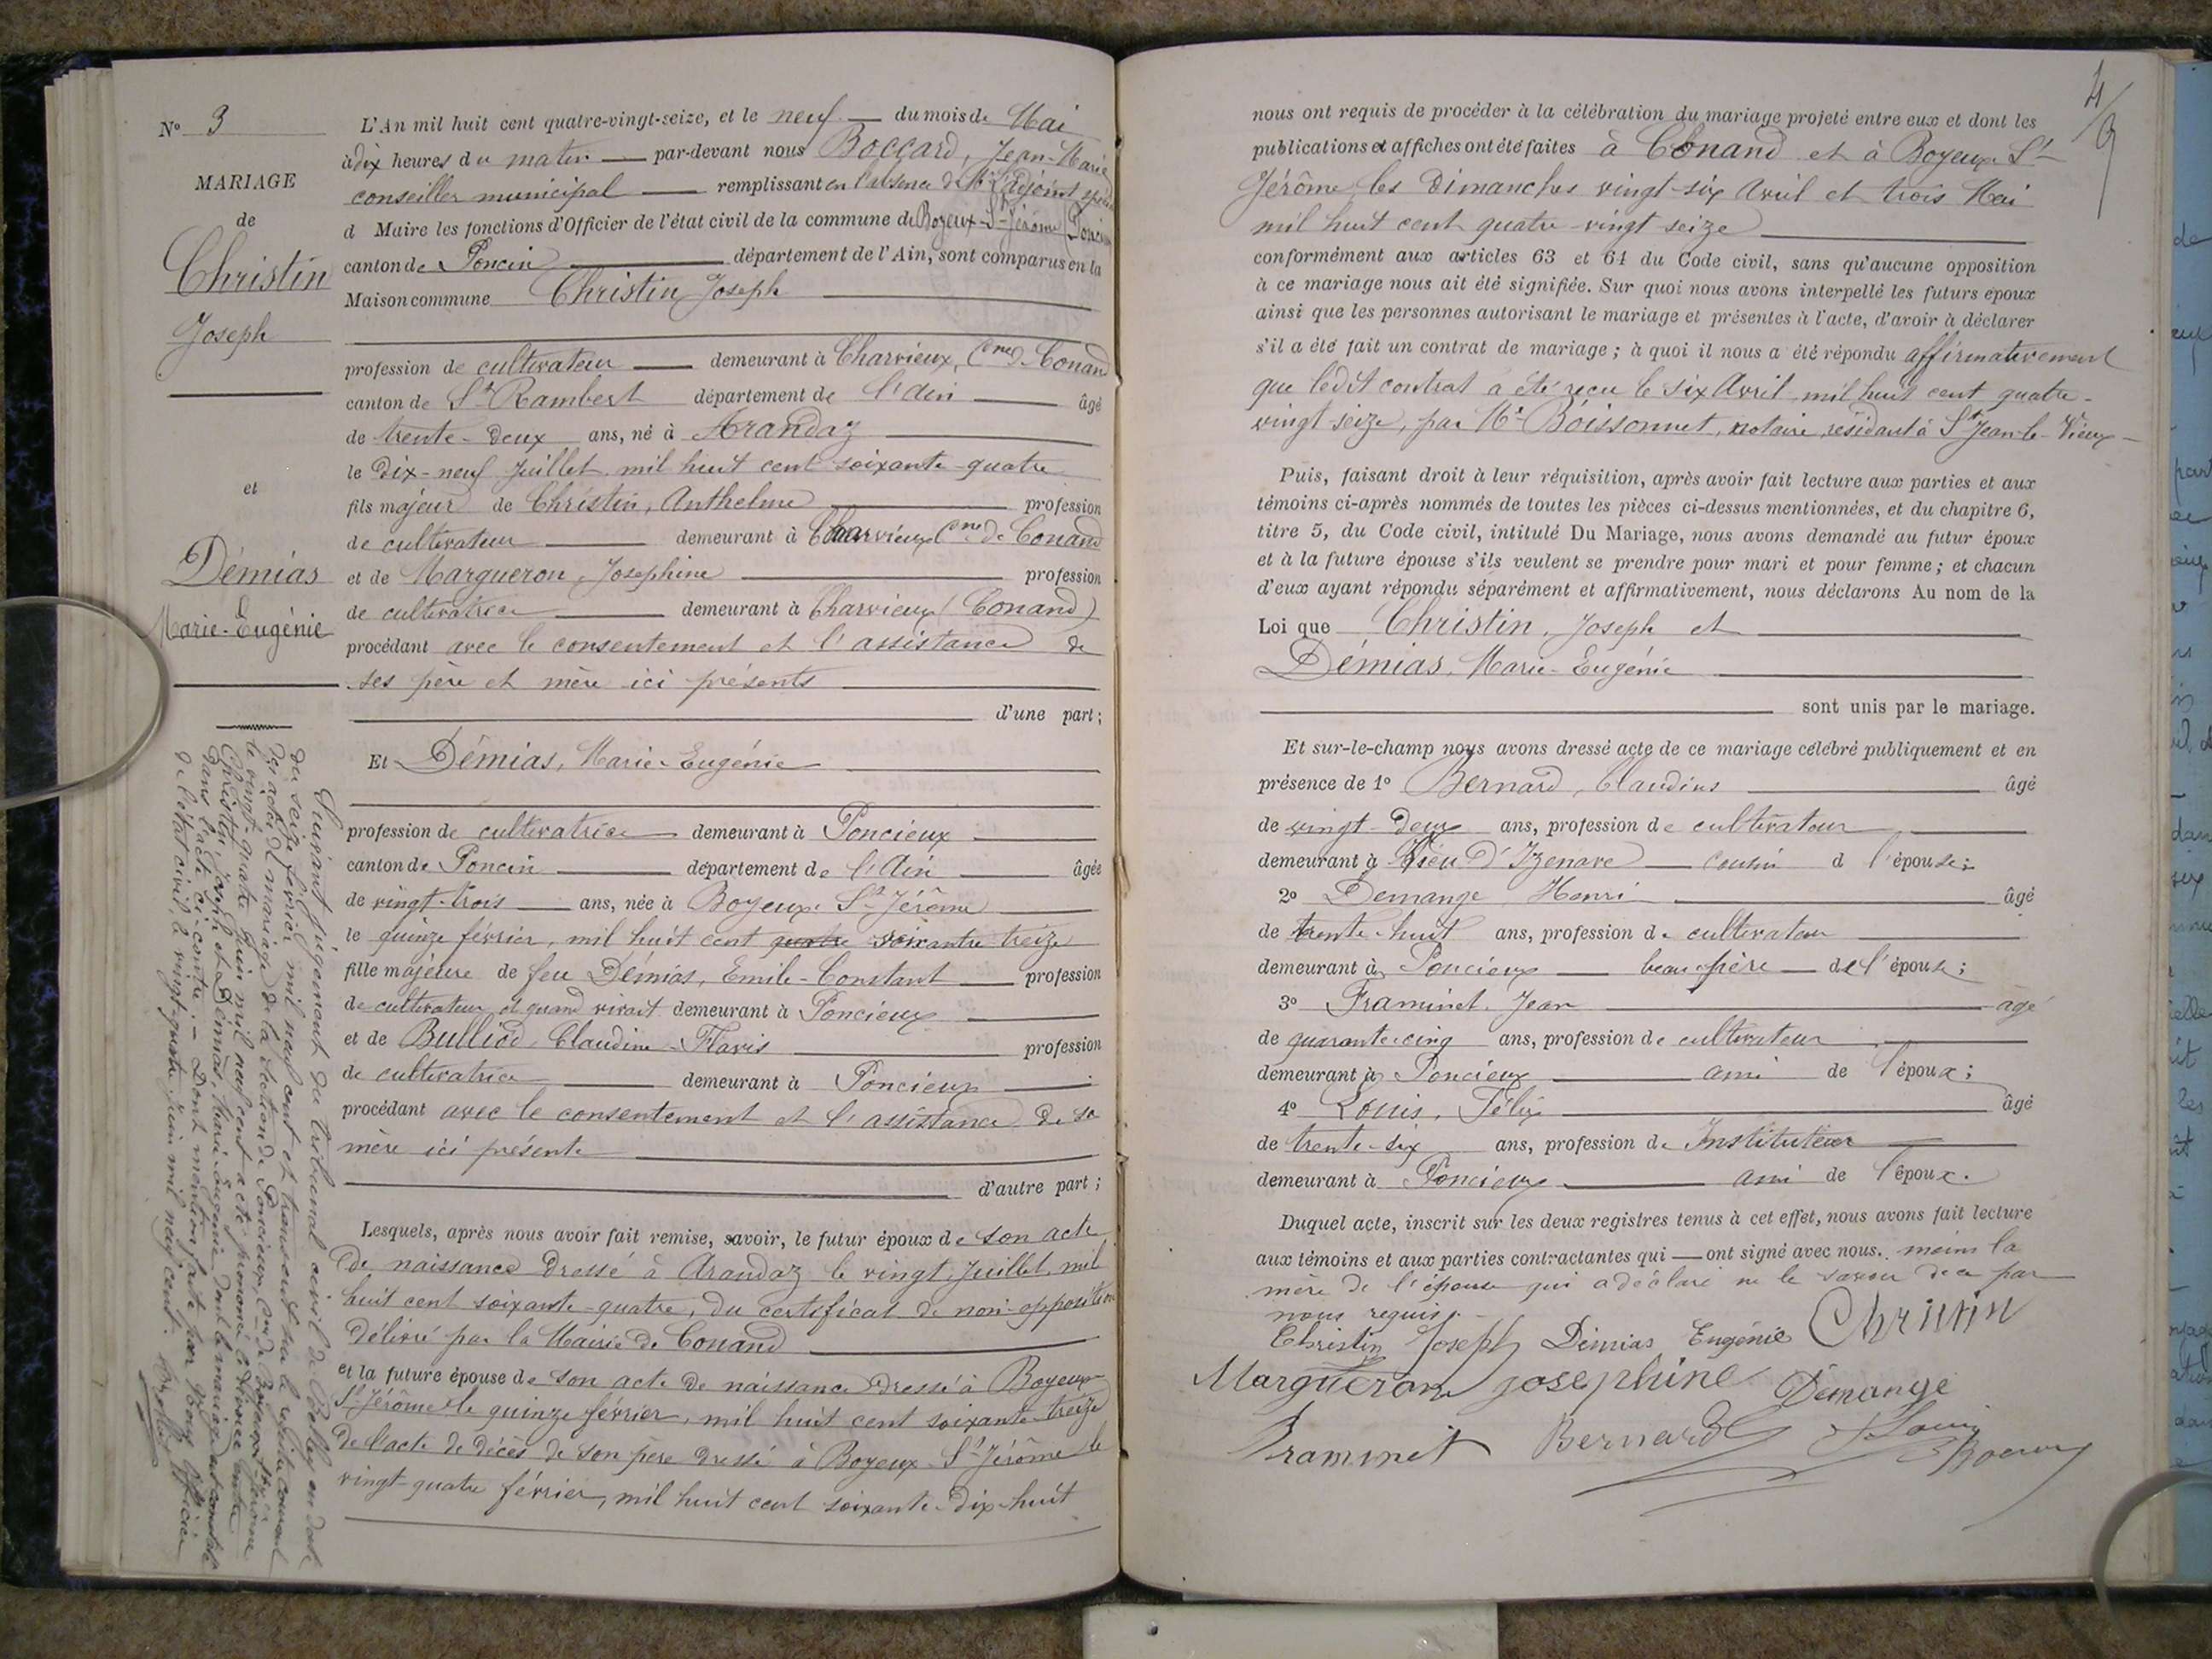 N° 3
MARIAGE
de
Christin
Joseph
et
Démias
Marie-Eugénie
Suivant jugement du tribunal civil de Belley en date
du seize février mil neuf cent et transcrit sur le registre courant
des actes de mariage de la section de Poncieux, Cne de Boyeux-St-Jérôme
le vingt-quatre Juin mil neuf cent a été prononcé le divorce entre
Christin, Joseph et Démias, Marie-Eugénie dont le mariage est constaté
dans l'acte ci-contre. – Dont mention faite par Nous officier
de l'état civil, le vingt-quatre Juin mil neuf cent.
L'An mil huit cent quatre-vingt-seize, et le neuf du mois de Mai
à dix heures du matin par-devant nous Boccard, Jean-Marie
conseiller municipal remplissant en l'absence de Mr l'adjoint spécial
d Maire les fonctions d'Officier de l'état civil de la commune de Boyeux-St-Jérôme (Poncieux
canton de Poncin département de l'Ain, sont comparus en la
Maison commune Christin Joseph
profession de cultivateur demeurant à Charvieux, Cne de Conand
canton de St Rambert département de l'Ain âgé
de trente-deux ans, né à Arandaz
le dix-neuf Juillet mil huit cent soixante-quatre
fils majeur de Christin, Anthelme profession
de cultivateur demeurant à Charvieux Cne de Conand
et de Margueron, Josephine profession
de cultivatrice demeurant à Charvieux (Conand)
procédant avec le consentement et l'assistance de
ses père et mère ici présents
d'une part;
Et Démias, Marie-Eugénie
profession de cultivatrice demeurant à Poncieux
canton de Poncin département de l'Ain âgée
de vingt-trois ans, née à Boyeux-St-Jérôme
le quinze février, mil huit cent quatre soixante-treize
fille majeure de feu Démias, Emile-Constant profession
de cultivateur et quand vivait demeurant à Poncieux
et de Bulliod, Claudine-Flavis profession
de cultivatrice demeurant à Poncieux
procédant avec le consentement et l'assistance de sa
mère ici présente
d'autre part;
Lesquels, après nous avoir fait remise, savoir, le futur époux de son acte
de naissance dressé à Arandaz le vingt Juillet mil
huit cent soixante-quatre, du certificat de non-opposition
délivré par la Mairie de Conand
et la future épouse de son acte de naissance dressé à Boyeux
St-Jérôme le quinze février, mil huit cent soixante-treize
de l'acte de décès de son père dressé à Boyeux-St-Jérôme le
vingt-quatre février, mil huit cent soixante-dix-huit
4/9
nous ont requis de procéder à la célébration du mariage projeté entre eux et dont les
publications et affiches ont été faites à Conand et à Boyeux-St-
Jérôme les Dimanches vingt-six Avril et trois Mai
mil huit cent quatre-vingt seize
conformément aux articles 63 et 64 du Code civil, sans qu'aucune opposition
à ce mariage nous ait été signifiée. Sur quoi nous avons interpellé les futurs époux
ainsi que les personnes autorisant le mariage et présentes à l'acte, d'avoir à déclarer
s'il a été fait un contrat de mariage; à quoi il nous a été répondu affirmativement
que ledit contrat a été reçu le six Avril mil huit cent quatre-
vingt-seize, par Me Boissonnet, notaire résidant à St Jean-le-Vieux
Puis, faisant droit à leur réquisition, après avoir fait lecture aux parties et aux
témoins ci-après nommés de toutes les pièces ci-dessus mentionnées, et du chapitre 6,
titre 5, du Code civil, intitulé Du Mariage, nous avons demandé au futur époux
et à la future épouse s'ils veulent se prendre pour mari et pour femme; et chacun
d'eux ayant répondu séparément et affirmativement, nous déclarons Au nom de la
Loi que Christin, Joseph et
Démias, Marie-Eugénie
sont unis par le mariage.
Et sur-le-champ nous avons dressé acte de ce mariage célébré publiquement et en
présence de 1° Bernard, Claudius âgé
de vingt-deux ans, profession de cultivateur
demeurant à Vieu d'Izenave cousin d l'épouse;
2° Demange Henri âgé
de trente-huit ans, profession de cultivateur
demeurant à Poncieux beau-père de l'épouse;
3° Framinet, Jean âgé
de quarante-cinq ans, profession de cultivateur
demeurant à Poncieux ami de l'époux;
4° Louis, Félix âgé
de trente-six ans, profession de Instituteur
demeurant à Poncieux ami de l'époux.
Duquel acte, inscrit sur les deux registres tenus à cet effet, nous avons fait lecture
aux témoins et aux parties contractantes qui ont signé avec nous. moins la
mère de l'épouse qui a déclaré ne le savoir de ce par
nous requise.
Christin Joseph Démias Eugénie Christin
Margueron josephine Demange
Framinet Bernard C F Louis